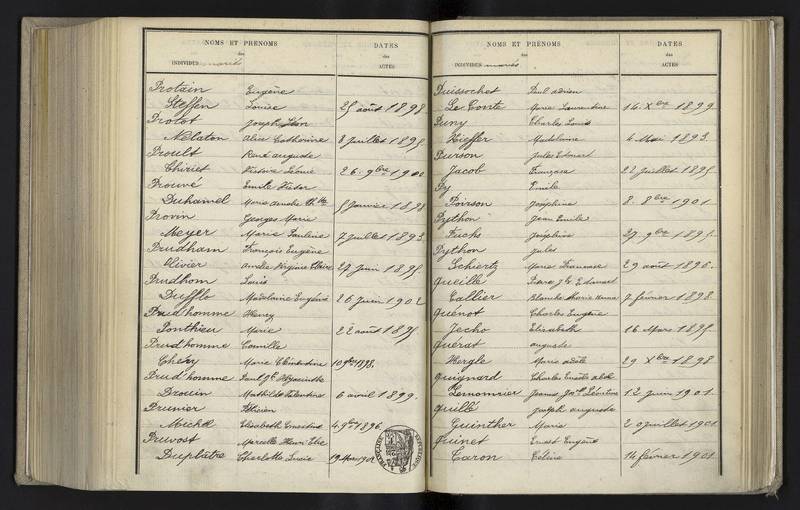 NOMS ET PRÉNOMS
des
INDIVIDUS mariés
DATES
des
ACTES
Protain Eugène
Steffen Louise 25 août 1898
Protot Joseph Léon
Nelaton Alice Catherine 8 juillet 1895
Proult René auguste
Chiviet Victoire Léonie 26. 9bre 1900
Prouvé Emile Victor
Duhamel Marie 5 janvier 1898
Provin Georges Marie
Meyer Marie Pauline 7 juillet 1893
Prudham François Eugène
Olivier Amélie Virginie Claire 27 juin 1895
Prudhom Louis
Dufflo Madeleine Eugénie 26 juin 1902
Prud'homme Henry
Ponthieu Marie 22 août 1895
Prudhomme Camille
Chéry Marie Clémentine 1898.
Prud'homme Paul Hyacinthe
Drouin Mathilde Valentine 6 avril 1899.
Prunier
Michel Elisabeth Ernestine 4. 9bre 1896
Pruvost Marcelle Henri Elie
Duplâtre Charlotte Lucie 19 Mars 1902
NOMS ET PRÉNOMS
des
INDIVIDUS mariés.
DATES
des
ACTES
Puissochet Paul adrien
Le Comte Marie Laurentine 14 Xbre 1899
Puny Charles Louis
Kieffer Madeleine 4 Mai 1893.
Purson Jules Edouard
Jacob Françoise 22 juillet 1895
Py Emile
Poirson Joséphine 8. 8bre 1901
Python Jean Emile
Fuchs Joséphine 27. 9bre 1895.
Python Jules
Schertz Marie Françoise 29 août 1896.
Queille Pierre Edouard
Tallier Blanche Marie 7 février 1898
Quenot Charles Eugène
Jecho Elisabeth 16 Mars 1895.
Querat auguste
Hergle Marie adèle 29 Xbre 1898
Quignard Charles
Lemonnier Jeanne 12 juin 1901
Quillé Joseph auguste
Guinther Marie 20 juillet 1901
Quinet Ernest Eugène
Caron Céline 14 février 1901